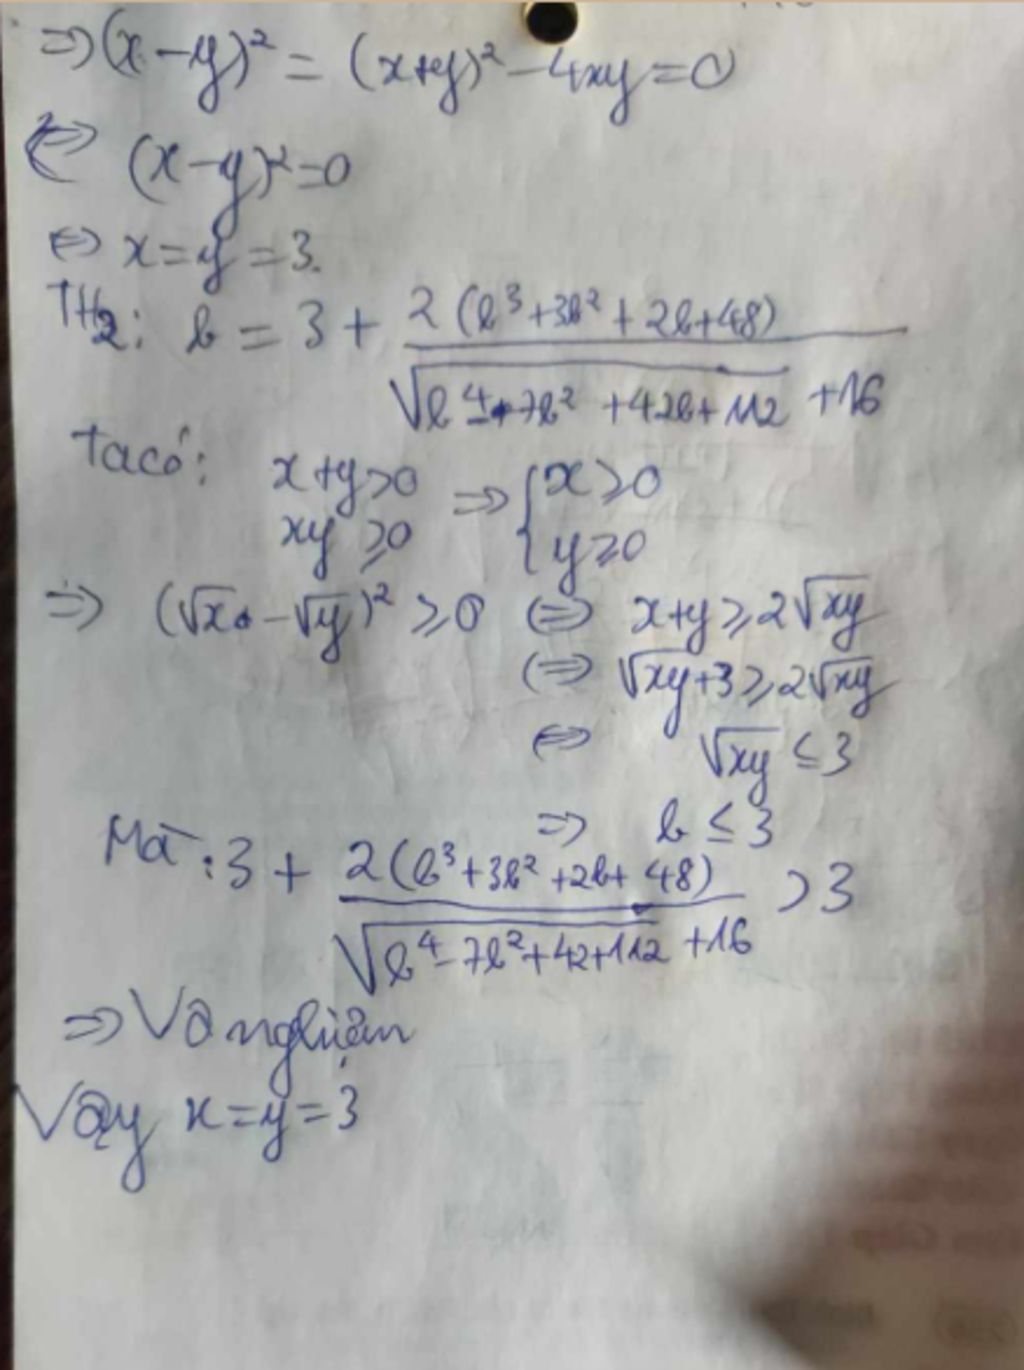 ⇒ (x-y)² = (x+y)² - 4xy = 0
⇔ (x-y)² = 0
⇔ x = y = 3.
TH2: b = 3 + 2(b³+3b²+2b+48) / √(b⁴-7b²+42b+112) + 16
Ta có: x+y>0 ⇒ { x ≥ 0
xy ≥ 0 y ≥ 0
⇒ (√x - √y)² ≥ 0 ⇔ x+y ≥ 2√xy
⇔ √xy + 3 ≥ 2√xy
⇔ √xy ≤ 3
⇒ b ≤ 3
Mà: 3 + 2(b³+3b²+2b+48) / √(b⁴-7b²+42+112) + 16 > 3
⇒ Vô nghiệm
Vậy x = y = 3